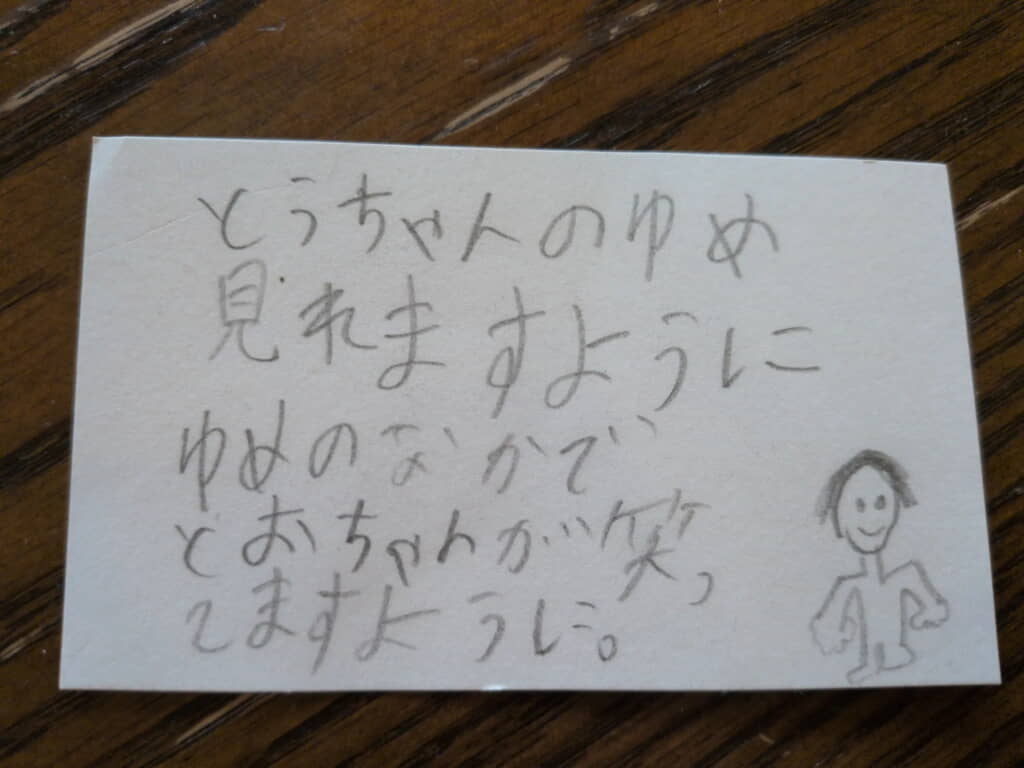 とうちゃんのゆめ
見れますように
ゆめのなかで
とおちゃんが笑っ
てますように。